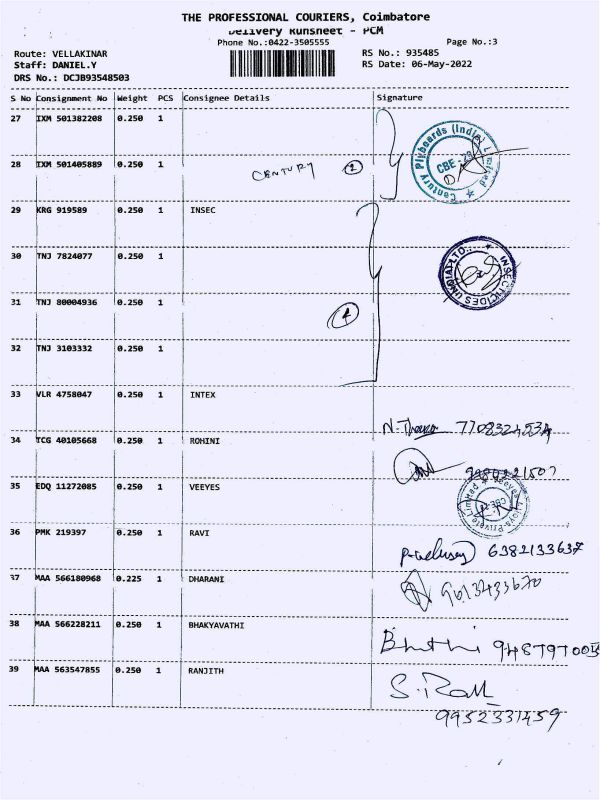 THE PROFESSIONAL COURIERS, Coimbatore
Delivery Runsheet - PCM
Phone No.:0422-3505555
Page No.:3
Route: VELLAKINAR
RS No.: 935485
Staff: DANIEL.Y
RS Date: 06-May-2022
DRS No.: DCJB93548503
S No Consignment No Weight PCS Consignee Details Signature
27 IXM 501382208 0.250 1
Century Plyboards (India) Limited
CBE - 29
28 IXM 501405889 0.250 1
CENTURY 2
29 KRG 919589 0.250 1 INSEC
30 TNJ 7824077 0.250 1
INSECTICIDES (INDIA) LTD.
31 TNJ 80004936 0.250 1
4
32 TNJ 3103332 0.250 1
33 VLR 4758047 0.250 1 INTEX
34 TCG 40105668 0.250 1 ROHINI
35 EDQ 11272085 0.250 1 VEEYES
Private Limited
36 PMK 219397 0.250 1 RAVI
6382133637
37 MAA 566180968 0.225 1 DHARANI
38 MAA 566228211 0.250 1 BHAKYAVATHI
39 MAA 563547855 0.250 1 RANJITH
9952331459